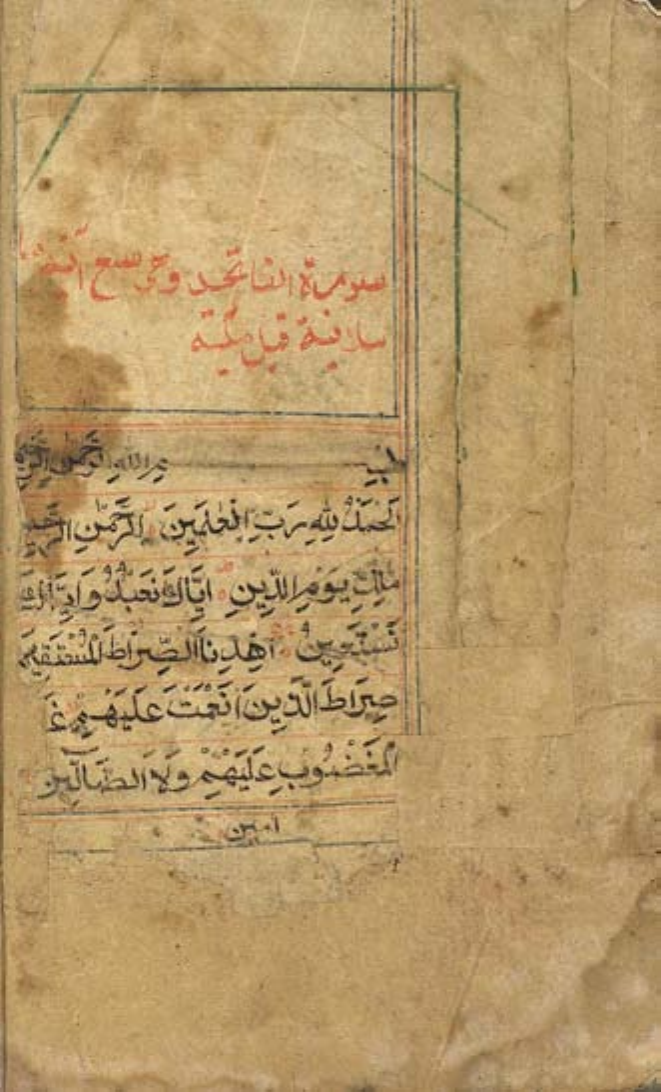 سورة الفاتحة وهي سبع آية
قيل مكية
بسم الله الرحمن الرحيم
اَلْحَمْدُ لِلّٰهِ رَبِّ الْعٰلَمِينَ اَلرَّحْمٰنِ الرَّحِيمِ
مٰلِكِ يَوْمِ الدِّينِ اِيَّاكَ نَعْبُدُ وَاِيَّاكَ
نَسْتَعِينُ اِهْدِنَا الصِّرَاطَ الْمُسْتَقِيمَ
صِرَاطَ الَّذِينَ اَنْعَمْتَ عَلَيْهِمْ غَ
الْمَغْضُوبِ عَلَيْهِمْ وَلَا الضَّالِّينَ
امين